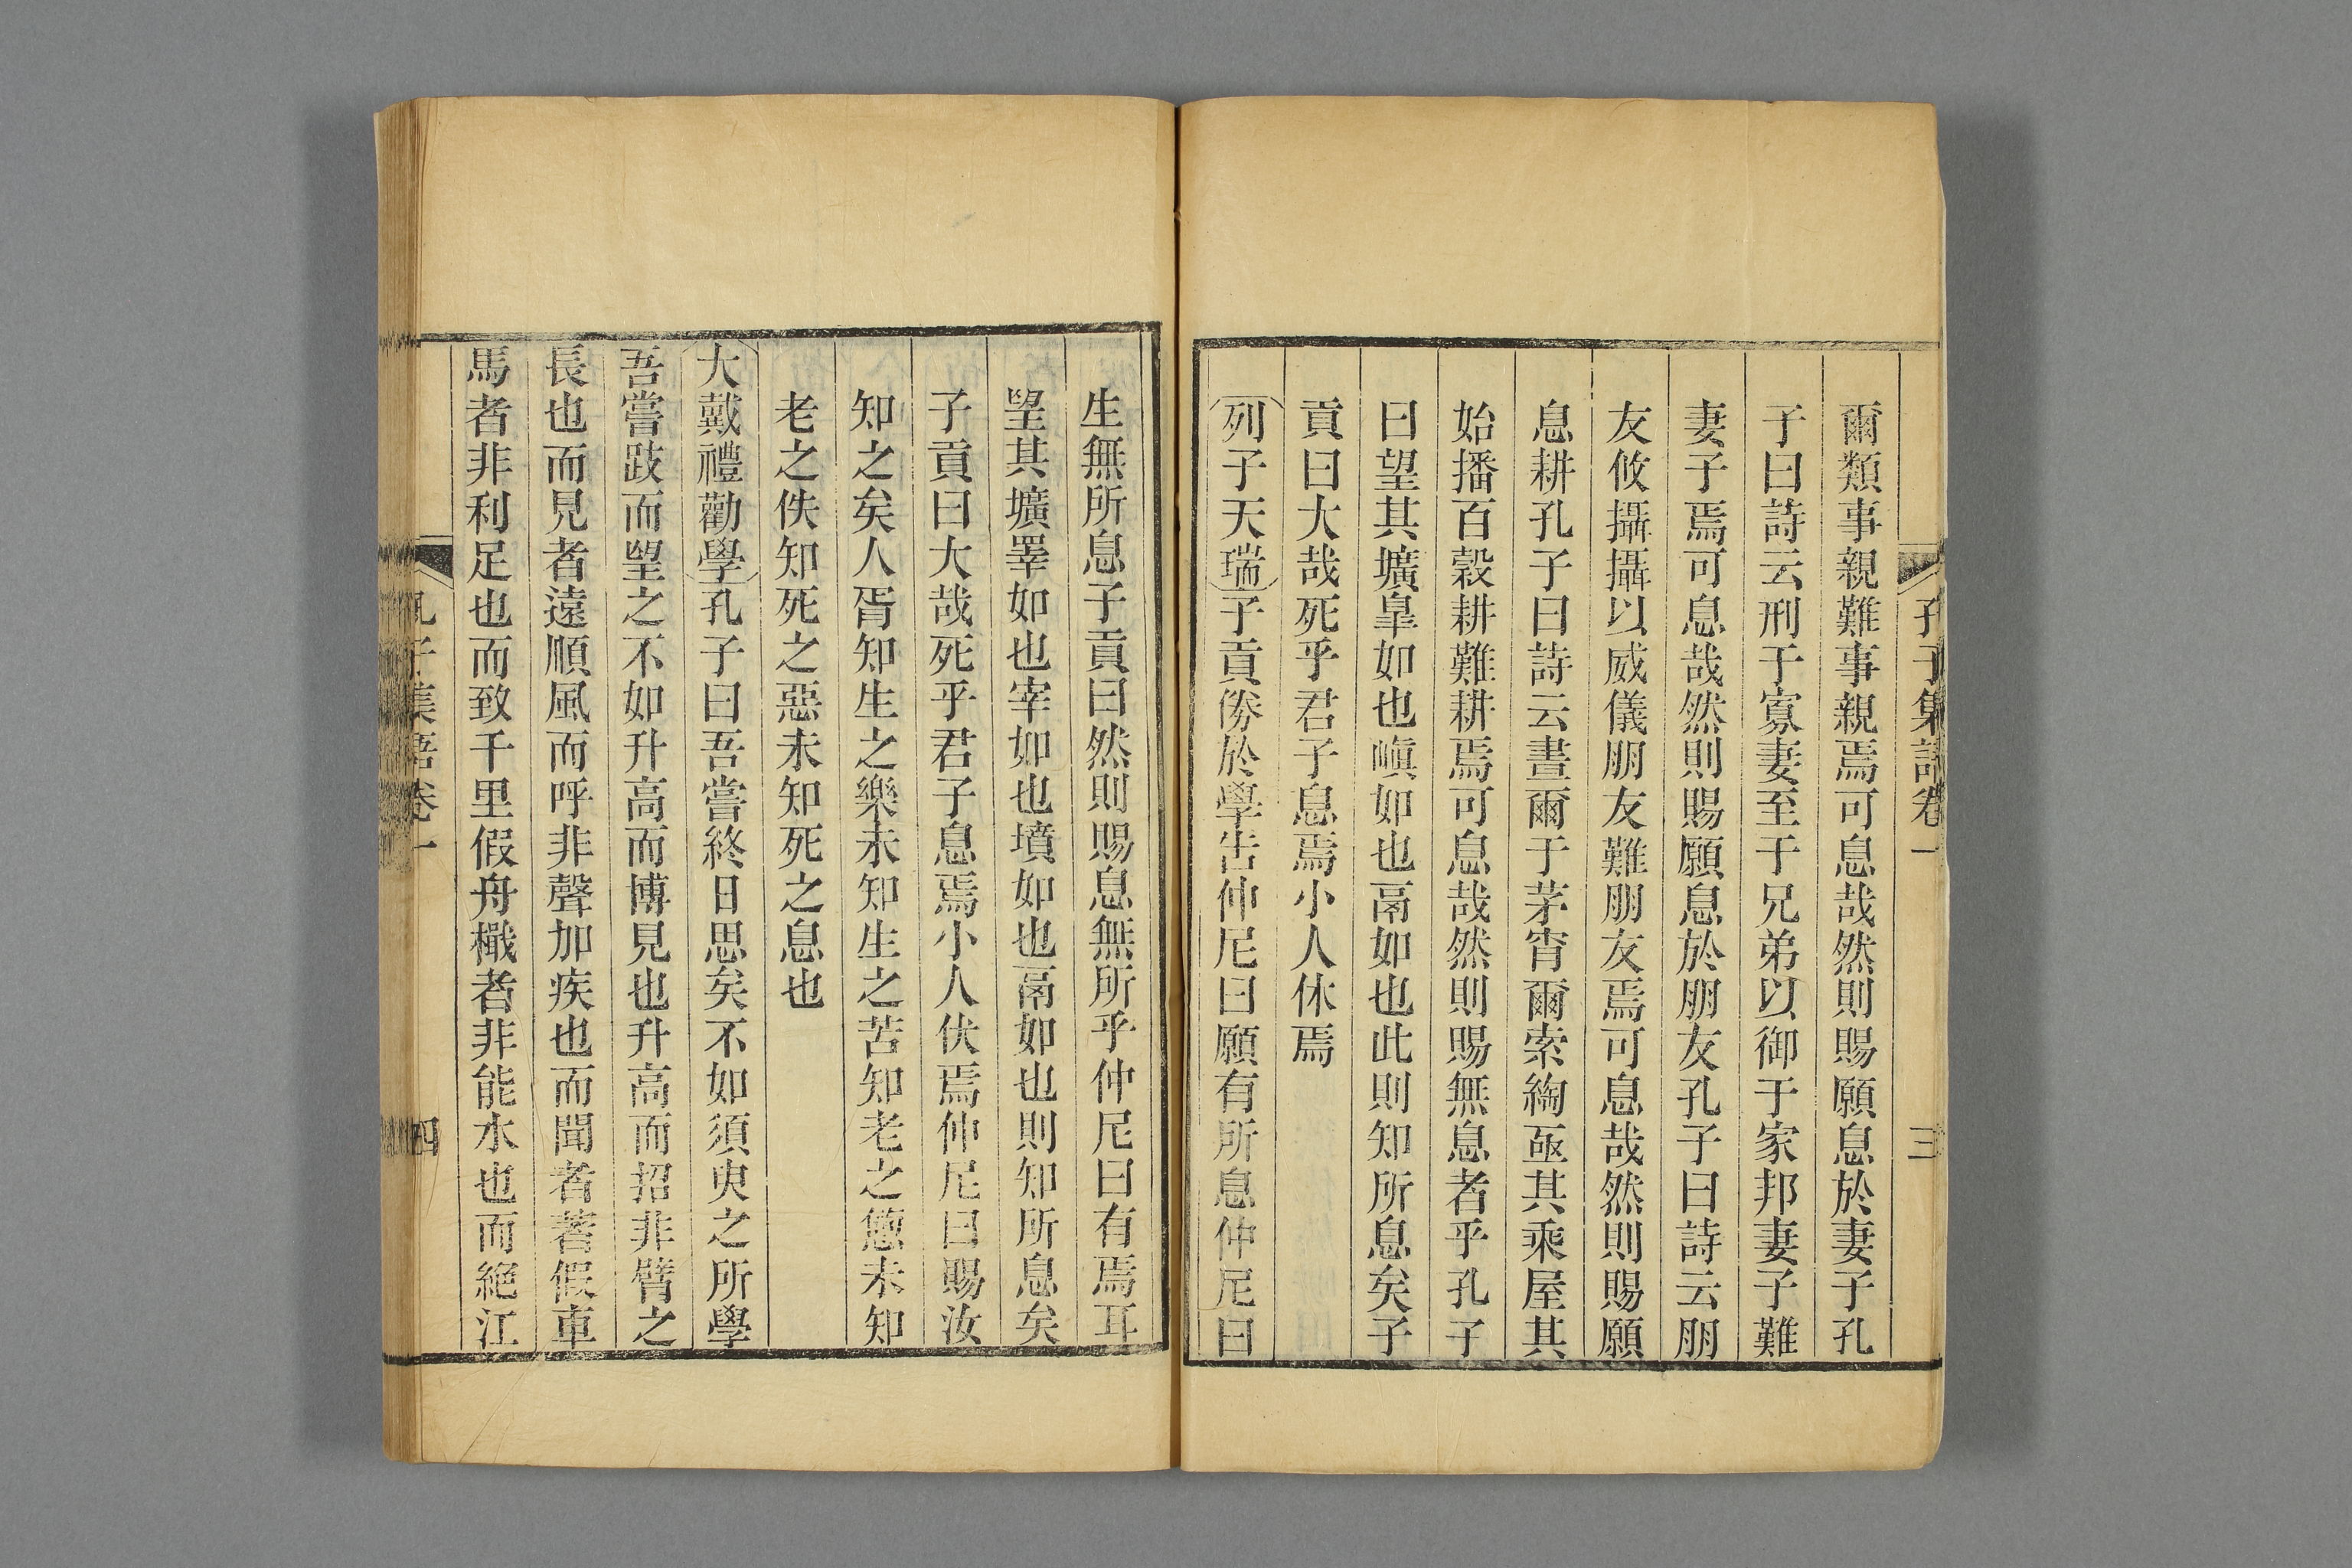 孔子集語卷一
三
爾類事親難事親焉可息哉然則賜願息於妻子孔
子曰詩云刑于寡妻至于兄弟以御于家邦妻子難
妻子焉可息哉然則賜願息於朋友孔子曰詩云朋
友攸攝攝以威儀朋友難朋友焉可息哉然則賜願
息耕孔子曰詩云晝爾于茅宵爾索綯亟其乘屋其
始播百穀耕難耕焉可息哉然則賜無息者乎孔子
曰望其壙皐如也嵮如也鬲如也此則知所息矣子
貢曰大哉死乎君子息焉小人休焉
列子天瑞子貢倦於學告仲尼曰願有所息仲尼曰
生無所息子貢曰然則賜息無所乎仲尼曰有焉耳
望其壙睪如也宰如也墳如也鬲如也則知所息矣
子貢曰大哉死乎君子息焉小人伏焉仲尼曰賜汝
知之矣人胥知生之樂未知生之苦知老之憊未知
老之佚知死之惡未知死之息也
大戴禮勸學孔子曰吾嘗終日思矣不如須臾之所學
吾嘗跂而望之不如升高而博見也升高而招非臂之
長也而見者遠順風而呼非聲加疾也而聞者著假車
馬者非利足也而致千里假舟檝者非能水也而絕江
孔子集語卷一
四